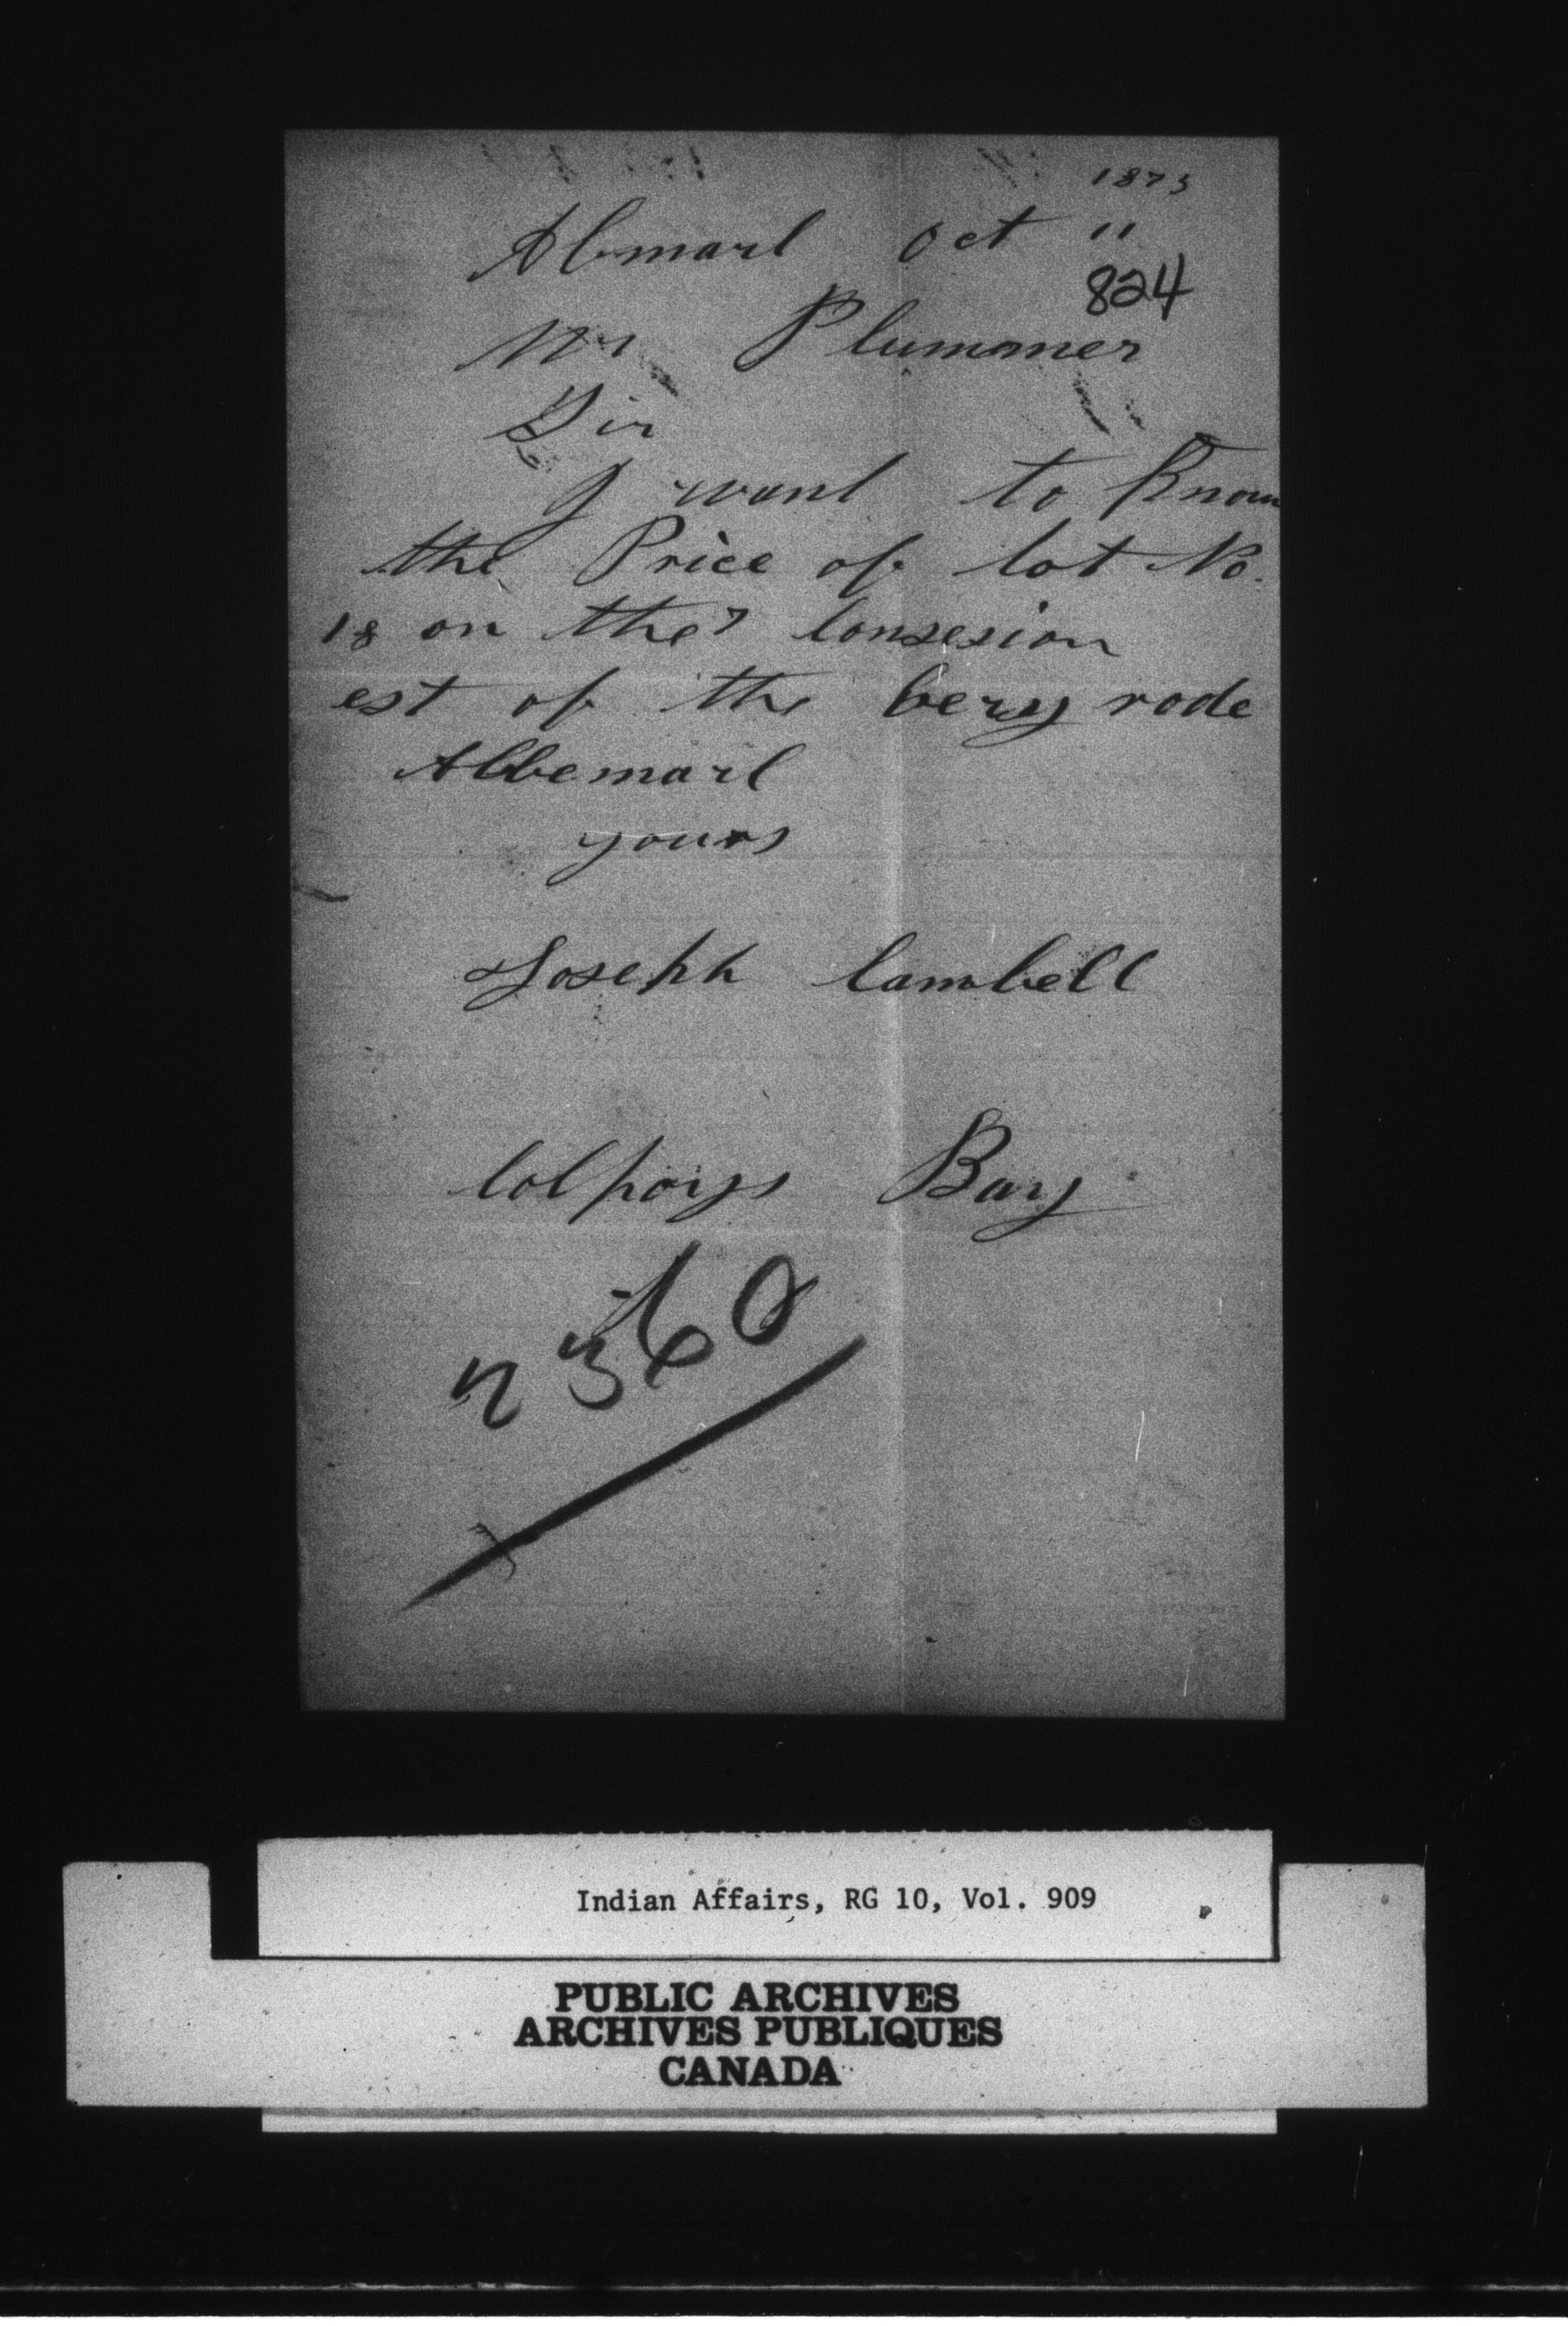 1873
Abmarl Oct 11
824
Mr Plummer
Sir
I want to Know
the Price of lot No.
18 on the 7 Consesion
est of the bery rode
Albemarl
yours
Joseph Cambell
Colpoys Bay
2360
Indian Affairs, RG 10, Vol. 909
PUBLIC ARCHIVES
ARCHIVES PUBLIQUES
CANADA